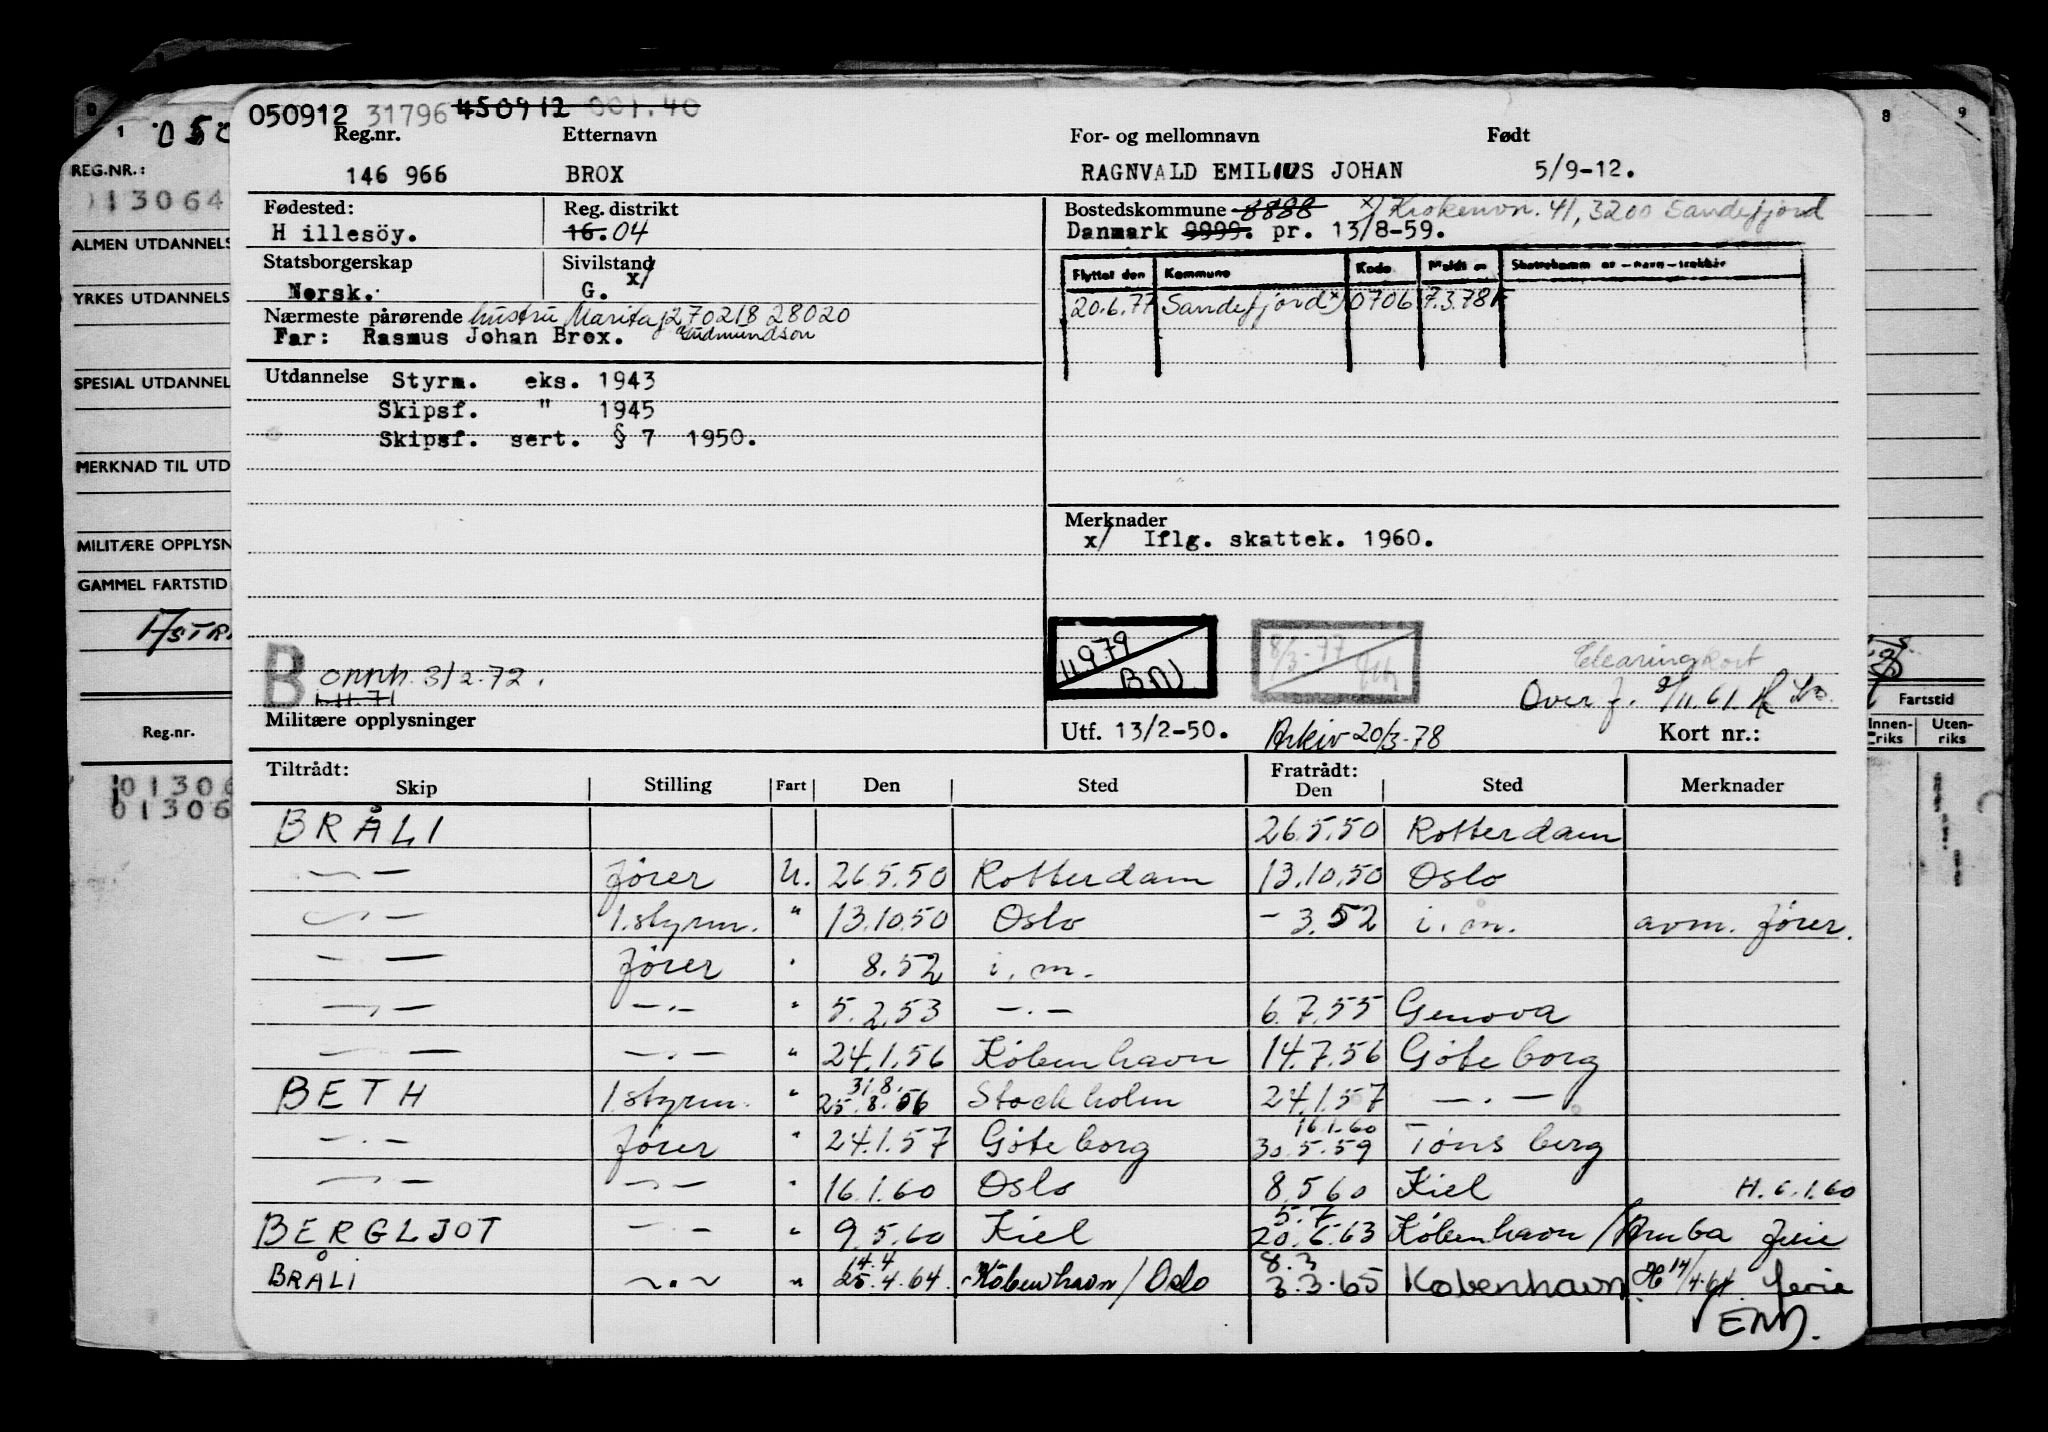 050912 31796 450912 001.40
Reg.nr. Etternavn For- og mellomnavn Født
146 966 BROX RAGNVALD EMILIUS JOHAN 5/9-12.
Fødested: Reg. distrikt Bostedskommune 8888 x) Krokenvn. 41, 3200 Sandefjord
H illesöy. 16. 04 Danmark 9999. pr. 13/8-59.
Statsborgerskap Sivilstand x/
Norsk. G.
Flyttet den Kommune Kode Meldt
20.6.77 Sandefjord x) 0706 7.3.78
Nærmeste pårørende hustru Marita f 270218 28020
Far: Rasmus Johan Brox. Gudmundson
Utdannelse Styrm. eks. 1943
Skipsf. " 1945
Skipsf. sert. § 7 1950.
Merknader
x/ Iflg. skattek. 1960.
11 9 79
BN
8/3-77
B
3/2-72.
1.11.71
Clearing kort
Overf. 8/11.61
Militære opplysninger Utf. 13/2-50. Arkiv 20/3-78 Kort nr.:
Tiltrådt: Fratrådt:
Skip Stilling Fart Den Sted Den Sted Merknader
BRÅLI 26.5.50 Rotterdam
— " — fører U. 26.5.50 Rotterdam 13.10.50 Oslo
— " — 1.styrm. " 13.10.50 Oslo - 3.52 i.m. avm. fører.
— " — fører " 8.52 i.m.
— " — — " — " 5.2.53 — " — 6.7.55 Genova
— " — — " — " 24.1.56 København 14.7.56 Göteborg
BETH 1.styrm. " 31.8. 25.8.56 Stockholm 24.1.57 — " —
— " — fører " 24.1.57 Göteborg 16.1.60 30.5.59 Tønsberg
— " — — " — " 16.1.60 Oslo 8.5.60 Kiel H. 6.1.60
BERGLJOT — " — " 9.5.60 Kiel 5.7 20.6.63 København / Aruba ferie
BRÅLI — " — " 14.4 25.4.64 København / Oslo 8.3 3.3.65 København H 14/4.64. ferie
REG.NR.:
ALMEN UTDANNELS
YRKES UTDANNELS
SPESIAL UTDANNEL
MERKNAD TIL UTD
MILITÆRE OPPLYSN
GAMMEL FARTSTID
Reg.nr.
8 9
Fartstid
Innen- Uten-
riks riks